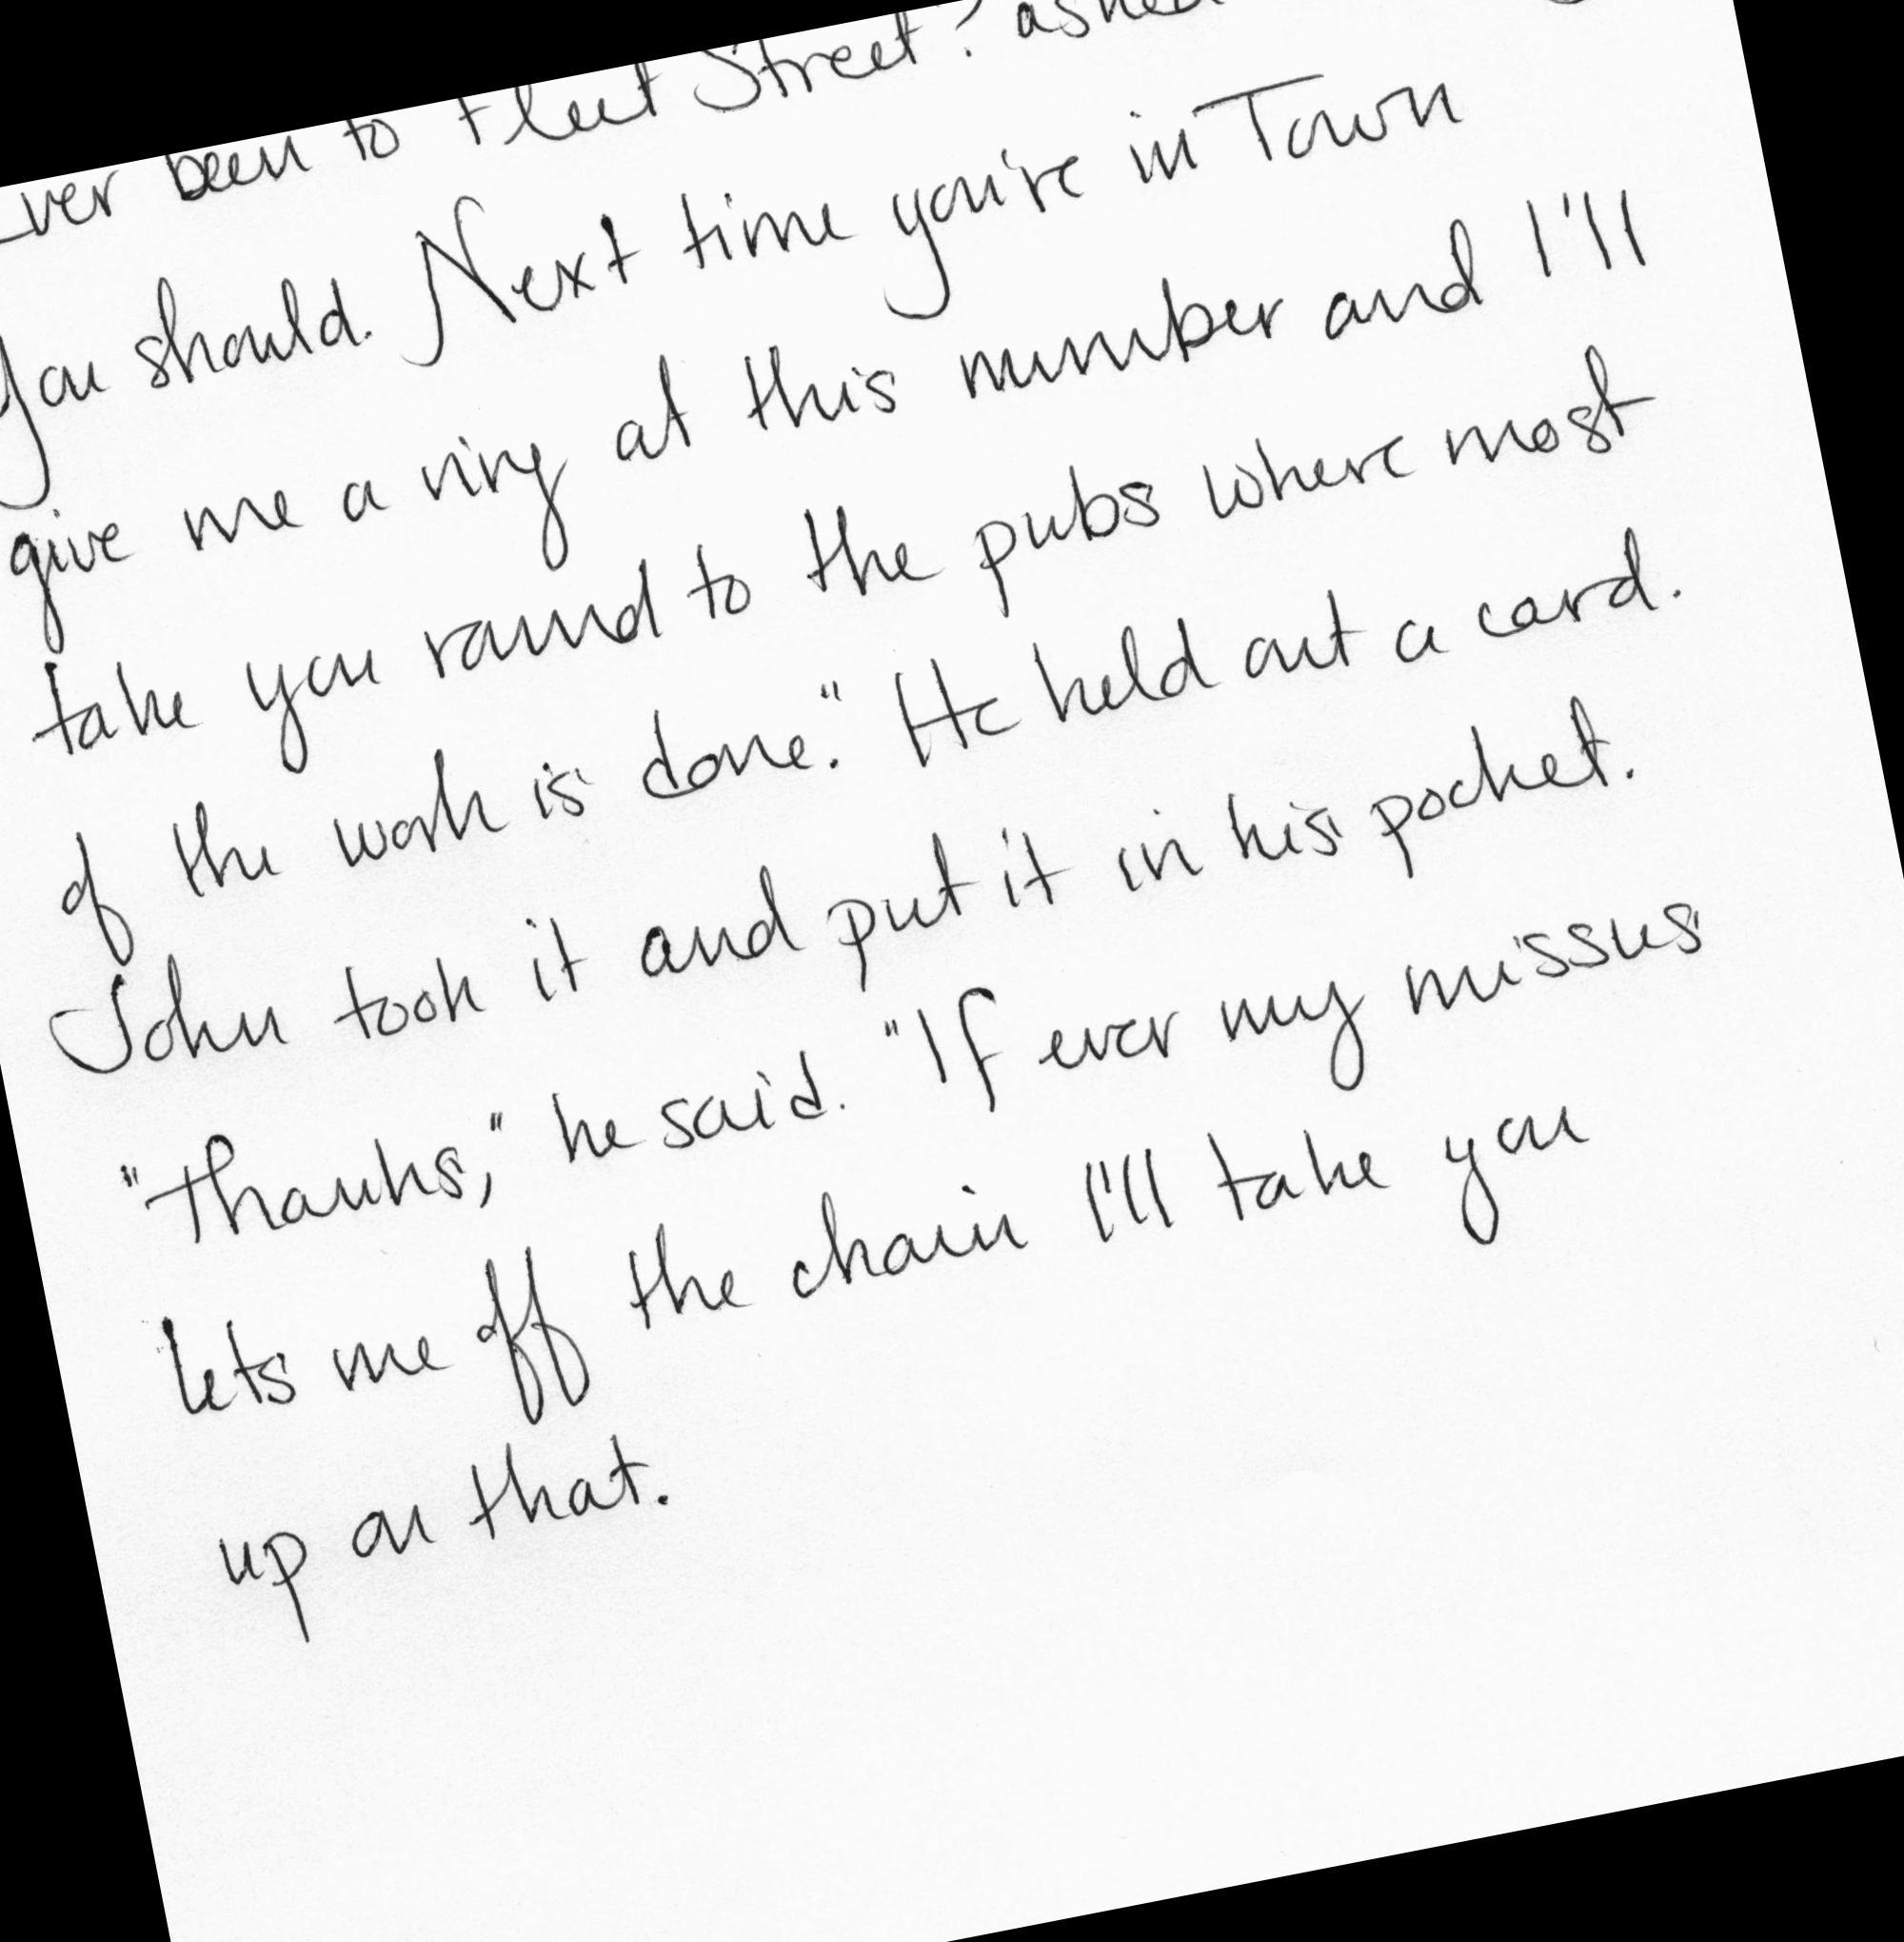 Ever been to Fleet Street? asked
You should. Next time you're in Town
give me a ring at this number and I'll
take you round to the pubs where most
of the work is done." He held out a card.
John took it and put it in his pocket.
"Thanks," he said. "If ever my missus
lets me off the chain I'll take you
up on that.